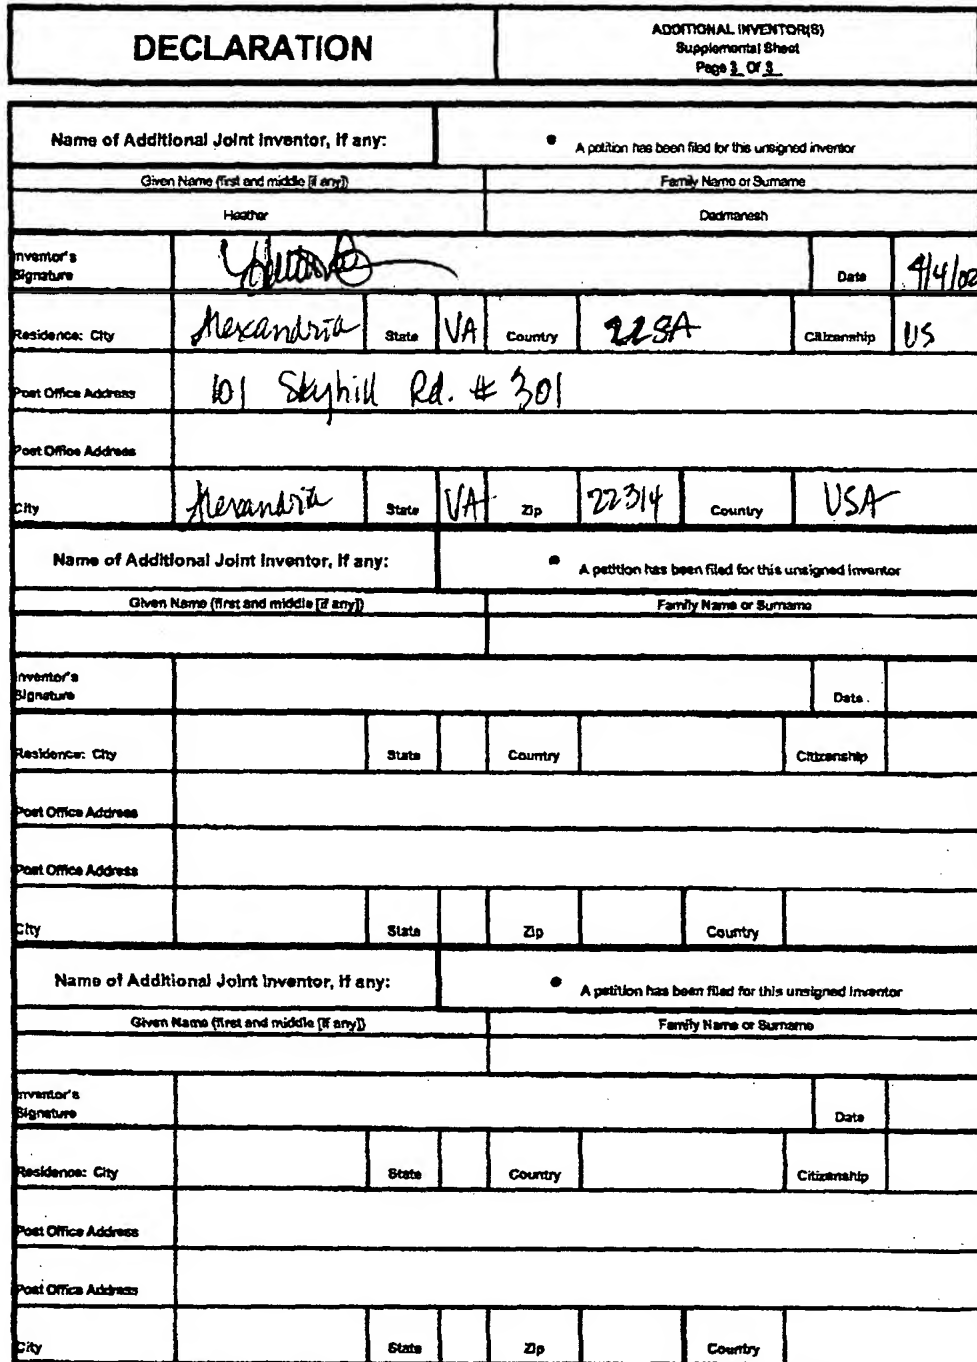 DECLARATION
ADDITIONAL INVENTOR(S)
Supplemental Sheet
Page 3 Of 3
Name of Additional Joint Inventor, if any:
• A petition has been filed for this unsigned inventor
Given Name (first and middle [if any]) Family Name or Surname
Heather Dadmanesh
Inventor's
Signature Date 4/4/02
Residence: City Alexandria State VA Country USA Citizenship US
Post Office Address 101 Skyhill Rd. # 301
Post Office Address
City Alexandria State VA Zip 22314 Country USA
Name of Additional Joint Inventor, if any:
• A petition has been filed for this unsigned inventor
Given Name (first and middle [if any]) Family Name or Surname
Inventor's
Signature Date
Residence: City State Country Citizenship
Post Office Address
Post Office Address
City State Zip Country
Name of Additional Joint Inventor, if any:
• A petition has been filed for this unsigned inventor
Given Name (first and middle [if any]) Family Name or Surname
Inventor's
Signature Date
Residence: City State Country Citizenship
Post Office Address
Post Office Address
City State Zip Country